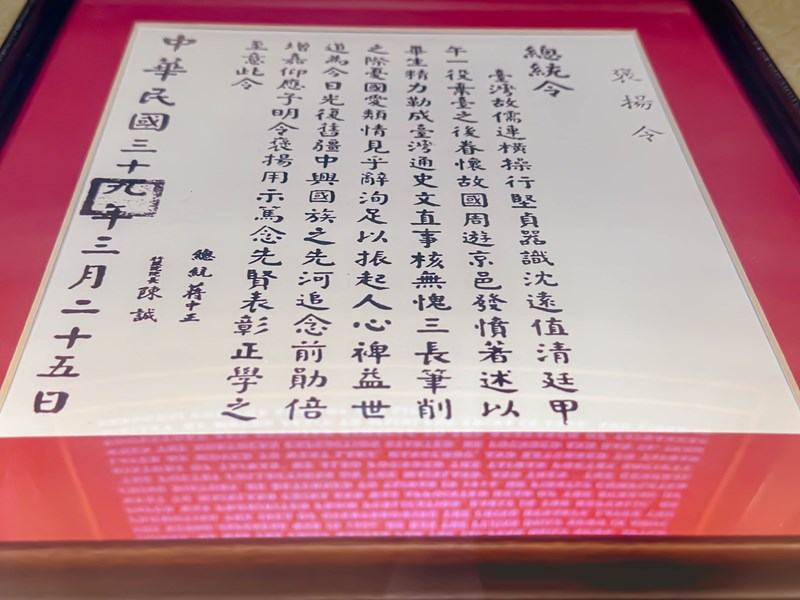 褒揚令
總統令
臺灣故儒連橫操行堅貞器識沈遠值清廷甲
午一役棄臺之後眷懷故國周遊京邑發憤著述以
畢生精力勤成臺灣通史文直事核無愧三長筆削
之際憂國愛類情見乎辭洵足以振起人心裨益世
道為今日光復舊疆中興國族之先河追念前勛倍
增嘉仰應予明令褒揚用示篤念先賢表彰正學之
至意此令
總統蔣中正
行政院院長陳誠
中華民國三十九年三月二十五日